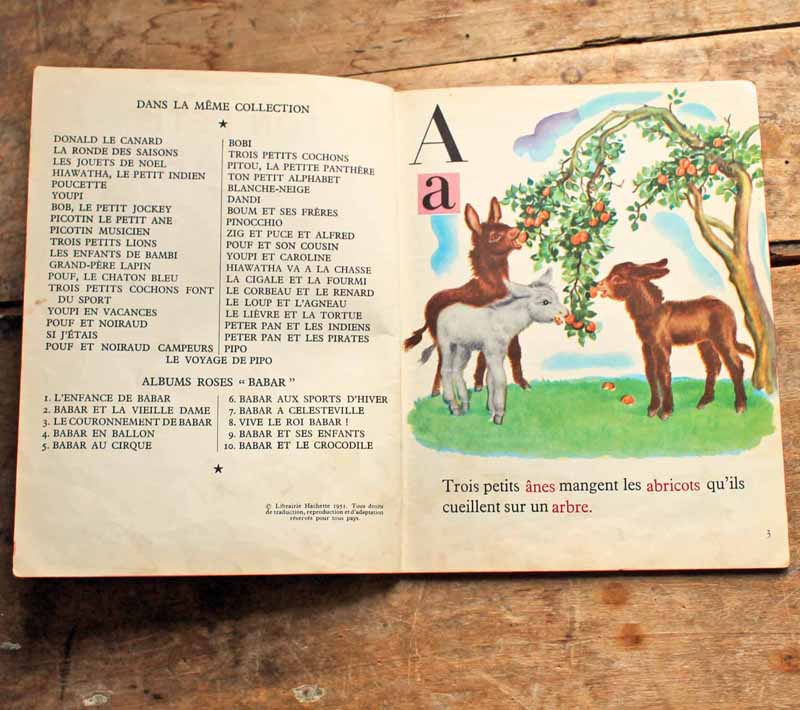 DANS LA MÊME COLLECTION
DONALD LE CANARD
LA RONDE DES SAISONS
LES JOUETS DE NOEL
HIAWATHA, LE PETIT INDIEN
POUCETTE
YOUPI
BOB, LE PETIT JOCKEY
PICOTIN LE PETIT ANE
PICOTIN MUSICIEN
TROIS PETITS LIONS
LES ENFANTS DE BAMBI
GRAND-PÈRE LAPIN
POUF, LE CHATON BLEU
TROIS PETITS COCHONS FONT
DU SPORT
YOUPI EN VACANCES
POUF ET NOIRAUD
SI J'ÉTAIS
POUF ET NOIRAUD CAMPEURS
BOBI
TROIS PETITS COCHONS
PITOU, LA PETITE PANTHÈRE
TON PETIT ALPHABET
BLANCHE-NEIGE
DANDI
BOUM ET SES FRÈRES
PINOCCHIO
ZIG ET PUCE ET ALFRED
POUF ET SON COUSIN
YOUPI ET CAROLINE
HIAWATHA VA A LA CHASSE
LA CIGALE ET LA FOURMI
LE CORBEAU ET LE RENARD
LE LOUP ET L'AGNEAU
LE LIÈVRE ET LA TORTUE
PETER PAN ET LES INDIENS
PETER PAN ET LES PIRATES
PIPO
LE VOYAGE DE PIPO
ALBUMS ROSES “ BABAR ”
1. L'ENFANCE DE BABAR
2. BABAR ET LA VIEILLE DAME
3. LE COURONNEMENT DE BABAR
4. BABAR EN BALLON
5. BABAR AU CIRQUE
6. BABAR AUX SPORTS D'HIVER
7. BABAR A CELESTEVILLE
8. VIVE LE ROI BABAR !
9. BABAR ET SES ENFANTS
10. BABAR ET LE CROCODILE
© Librairie Hachette 1951. Tous droits
de traduction, reproduction et d'adaptation
réservés pour tous pays.
A
a
Trois petits ânes mangent les abricots qu'ils
cueillent sur un arbre.
3